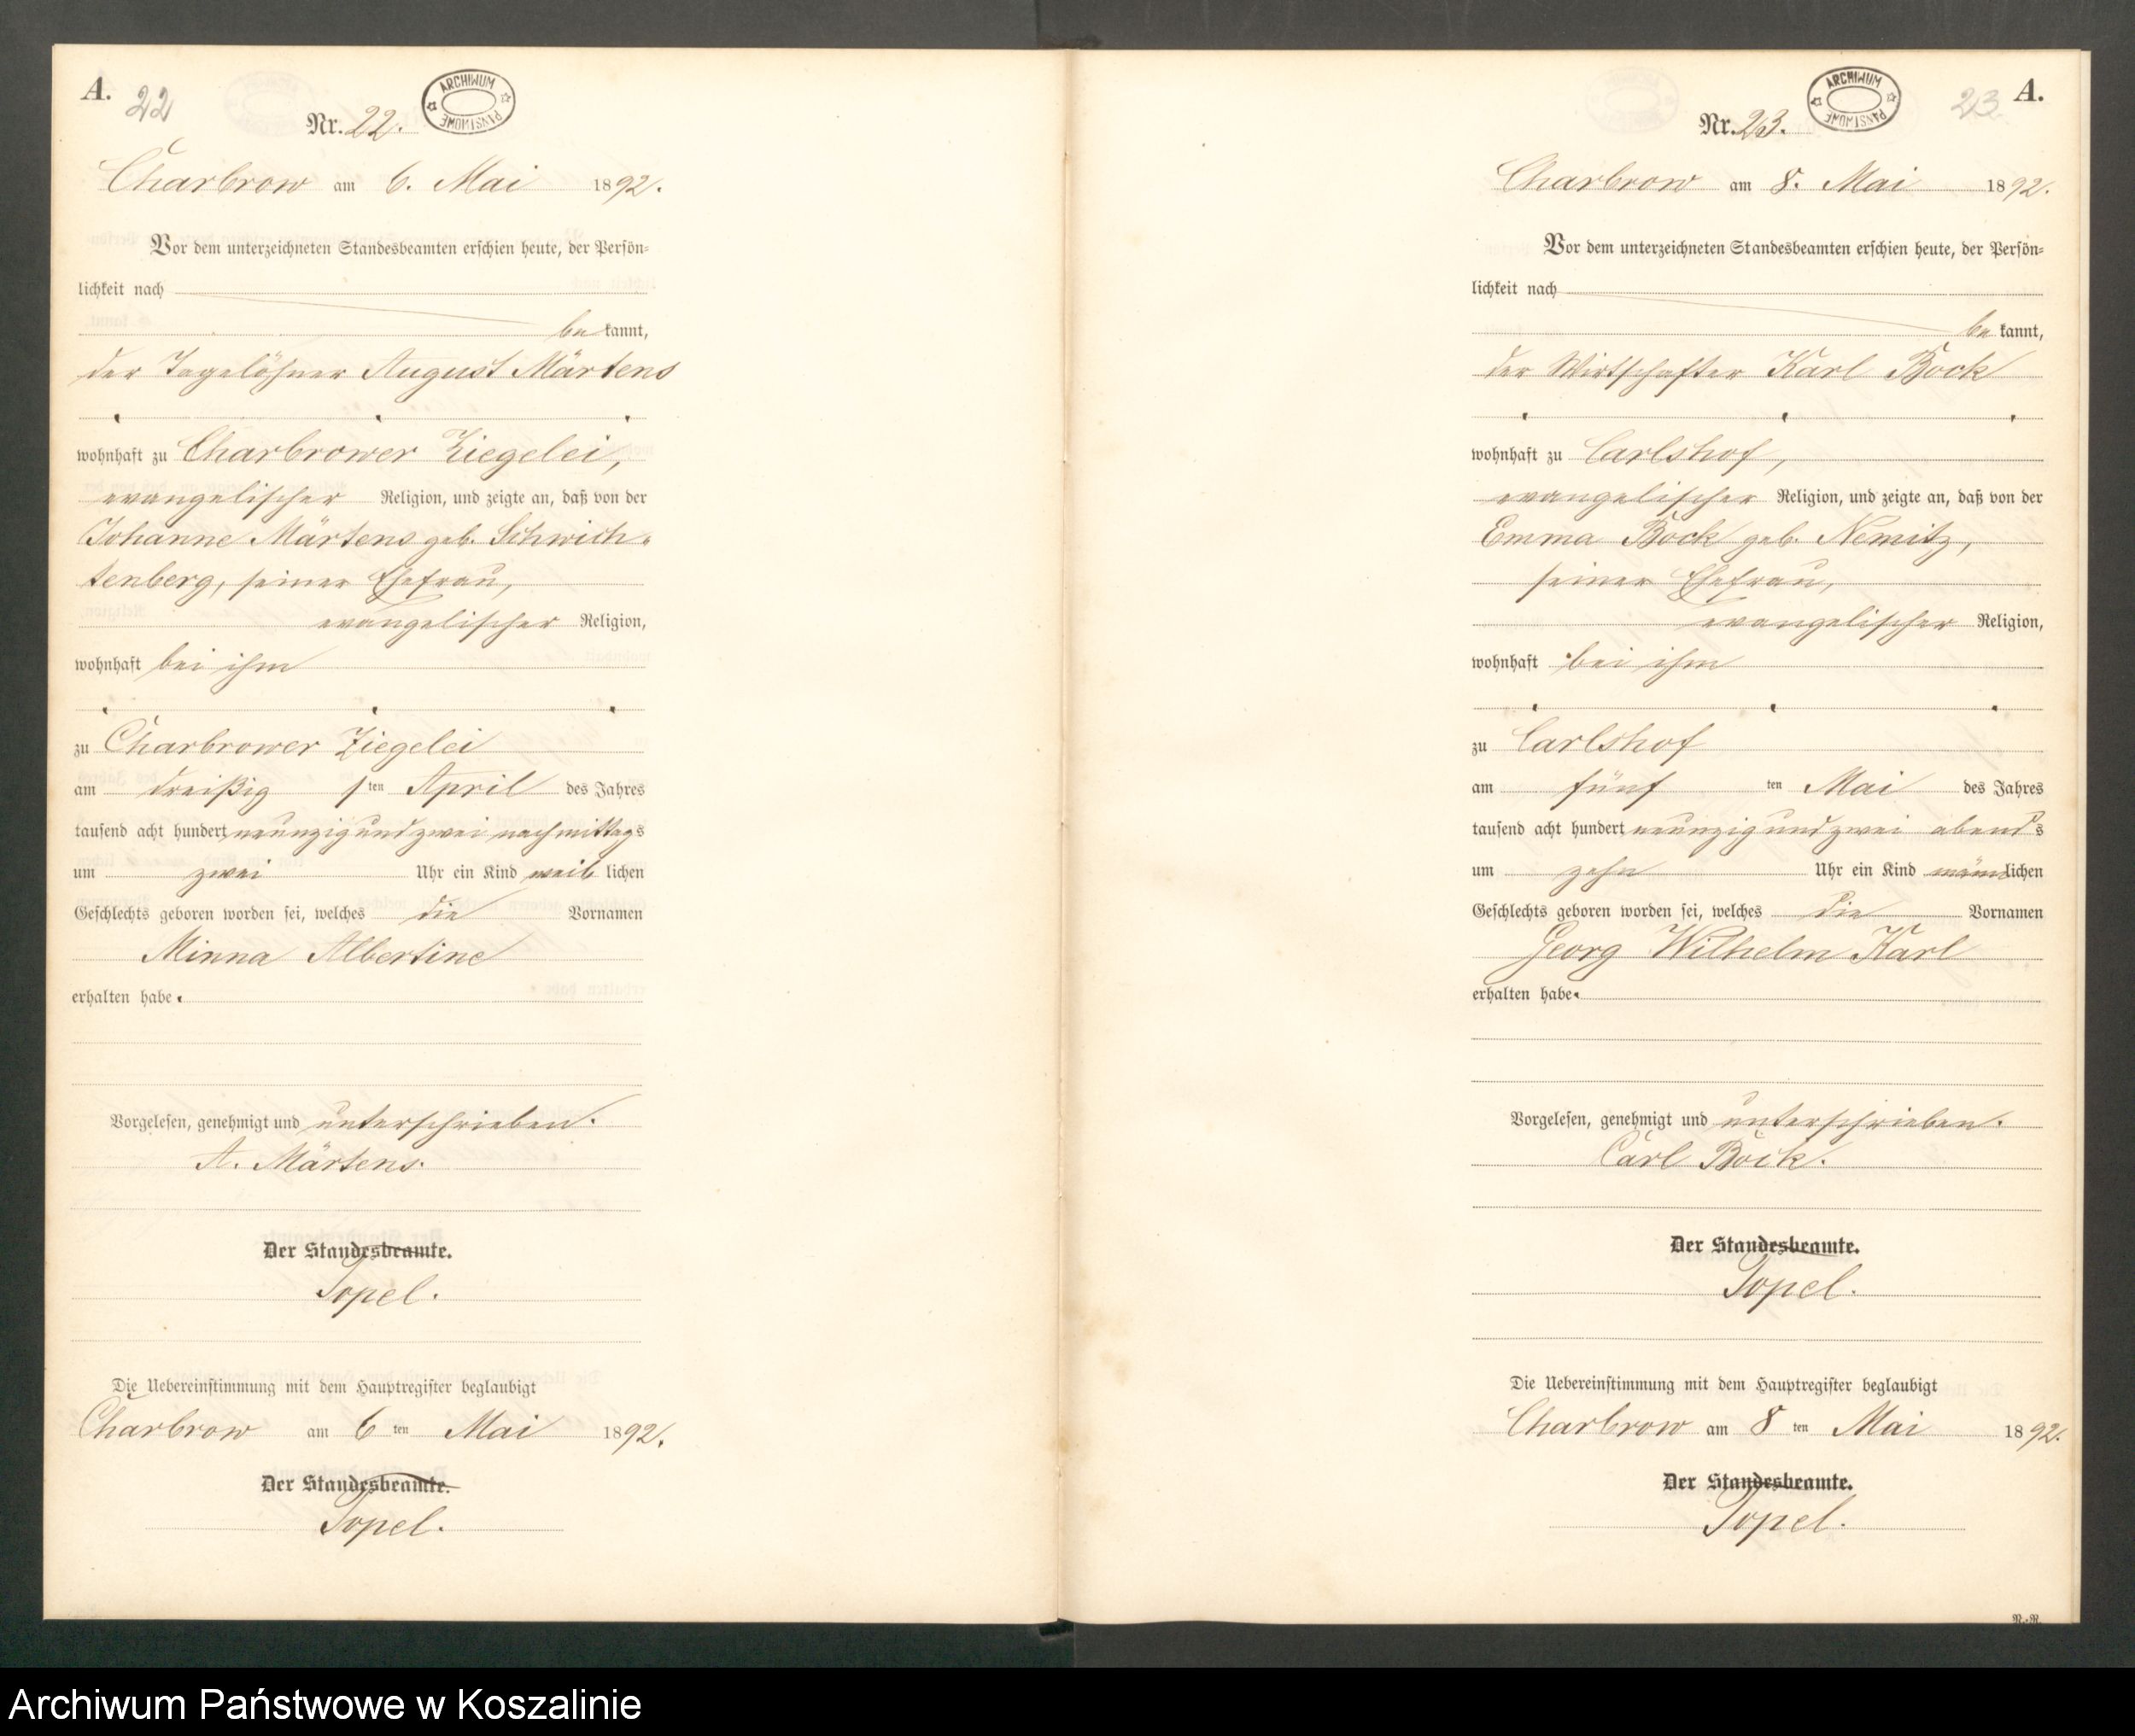 A. 22
Nr. 22.
ARCHIWUM PAŃSTWOWE
Charbrow am 6. Mai 1892.
Vor dem unterzeichneten Standesbeamten erschien heute, der Persön-
lichkeit nach
be kannt,
der Tagelöhner August Märtens
wohnhaft zu Charbrower Ziegelei,
evangelischer Religion, und zeigte an, daß von der
Johanne Märtens geb. Schwich-
tenberg, seiner Ehefrau,
evangelischer Religion,
wohnhaft bei ihm
zu Charbrower Ziegelei
am dreißig sten April des Jahres
tausend acht hundert neunzig und zwei nachmittags
um zwei Uhr ein Kind weib lichen
Geschlechts geboren worden sei, welches die Vornamen
Minna Albertine
erhalten habe.
Vorgelesen, genehmigt und unterschrieben.
A. Märtens.
Der Standesbeamte.
Topel.
Die Uebereinstimmung mit dem Hauptregister beglaubigt
Charbrow am 6ten Mai 1892.
Der Standesbeamte.
Topel.
23 A.
Nr. 23.
ARCHIWUM PAŃSTWOWE
Charbrow am 8. Mai 1892.
Vor dem unterzeichneten Standesbeamten erschien heute, der Persön-
lichkeit nach
be kannt,
der Wirtschafter Karl Bock
wohnhaft zu Carlshof,
evangelischer Religion, und zeigte an, daß von der
Emma Bock geb. Nemitz,
seiner Ehefrau,
evangelischer Religion,
wohnhaft bei ihm
zu Carlshof
am fünf ten Mai des Jahres
tausend acht hundert neunzig und zwei abends
um zehn Uhr ein Kind männlichen
Geschlechts geboren worden sei, welches die Vornamen
Georg Wilhelm Karl
erhalten habe.
Vorgelesen, genehmigt und unterschrieben.
Carl Bock.
Der Standesbeamte.
Topel.
Die Uebereinstimmung mit dem Hauptregister beglaubigt
Charbrow am 8ten Mai 1892.
Der Standesbeamte.
Topel.
Archiwum Państwowe w Koszalinie